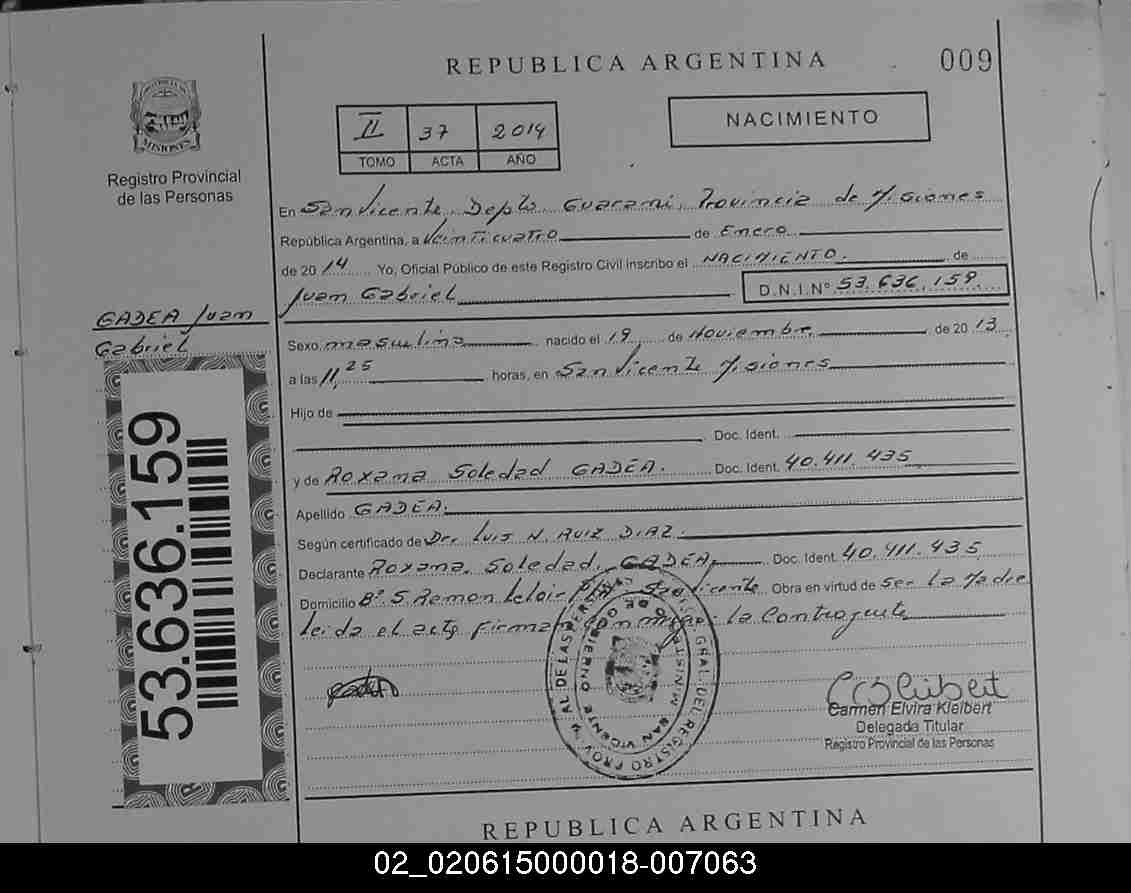 REPUBLICA ARGENTINA
009
MISIONES
Registro Provincial
de las Personas
II 37 2014
TOMO ACTA AÑO
NACIMIENTO
En San Vicente, Depto Guarani, Provincia de Misiones
República Argentina, a Veinticuatro de Enero
de 2014 Yo, Oficial Público de este Registro Civil inscribo el NACIMIENTO. de
Juan Gabriel D.N.I.N° 53.636.159
GADEA Juan
Gabriel
Sexo masculino nacido el 19 de Noviembre de 2013
a las 11,25 horas, en San Vicente Misiones
Hijo de
Doc. Ident.
y de Roxana Soledad GADEA. Doc. Ident. 40.411.435
Apellido GADEA.
Según certificado de Dr. Luis N. RUIZ DIAZ.
Declarante Roxana Soledad GADEA, Doc. Ident. 40.411.435
Domicilio Bº S Ramon San Vicente Obra en virtud de Ser La Madre
leida el acta firman conmigo: la
53.636.159
GRAL. DEL REGISTRO PROV. DE LAS PERSONAS
MINISTERIO DE GOBIERNO
SAN VICENTE
Carmen Elvira Kleibert
Delegada Titular
Registro Provincial de las Personas
REPUBLICA ARGENTINA
02_020615000018-007063